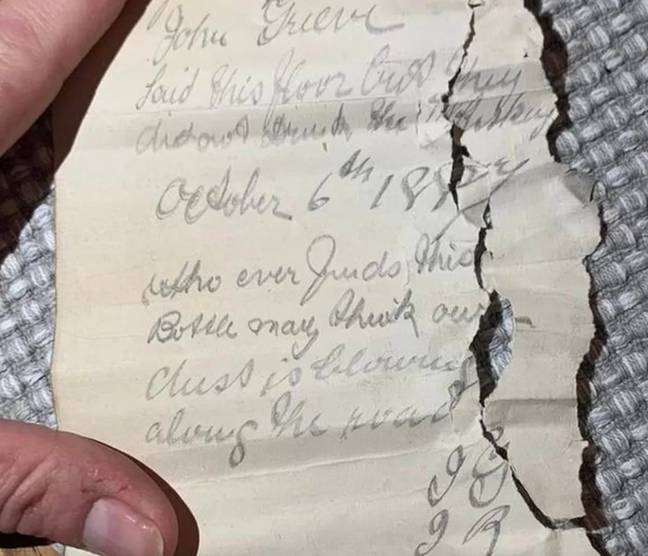 John Grieve
laid this floor but they
did not drink the Whiskey
October 6th 1887
who ever finds this
Bottle may think our
dust is blowing
along the road
J G
J R